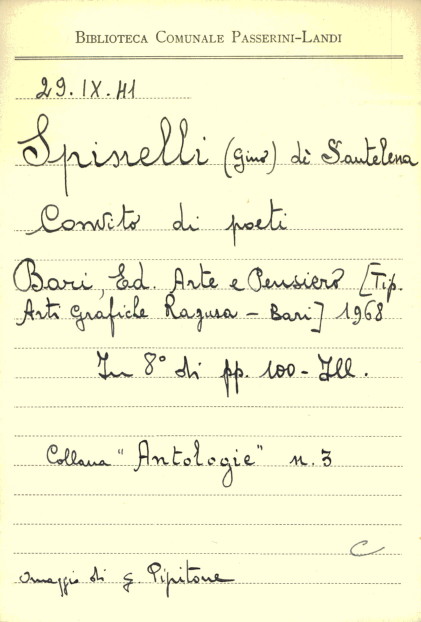 BIBLIOTECA COMUNALE PASSERINI-LANDI
29.IX.41
Spinelli (Gino) di Santelena
Convito di poeti
Bari, Ed. Arte e Pensiero [Tip.
Arti Grafiche Ragusa - Bari] 1968
In 8° di pp. 100 - Ill.
Collana "Antologie" n. 3
C
Omaggio di G. Pipitone